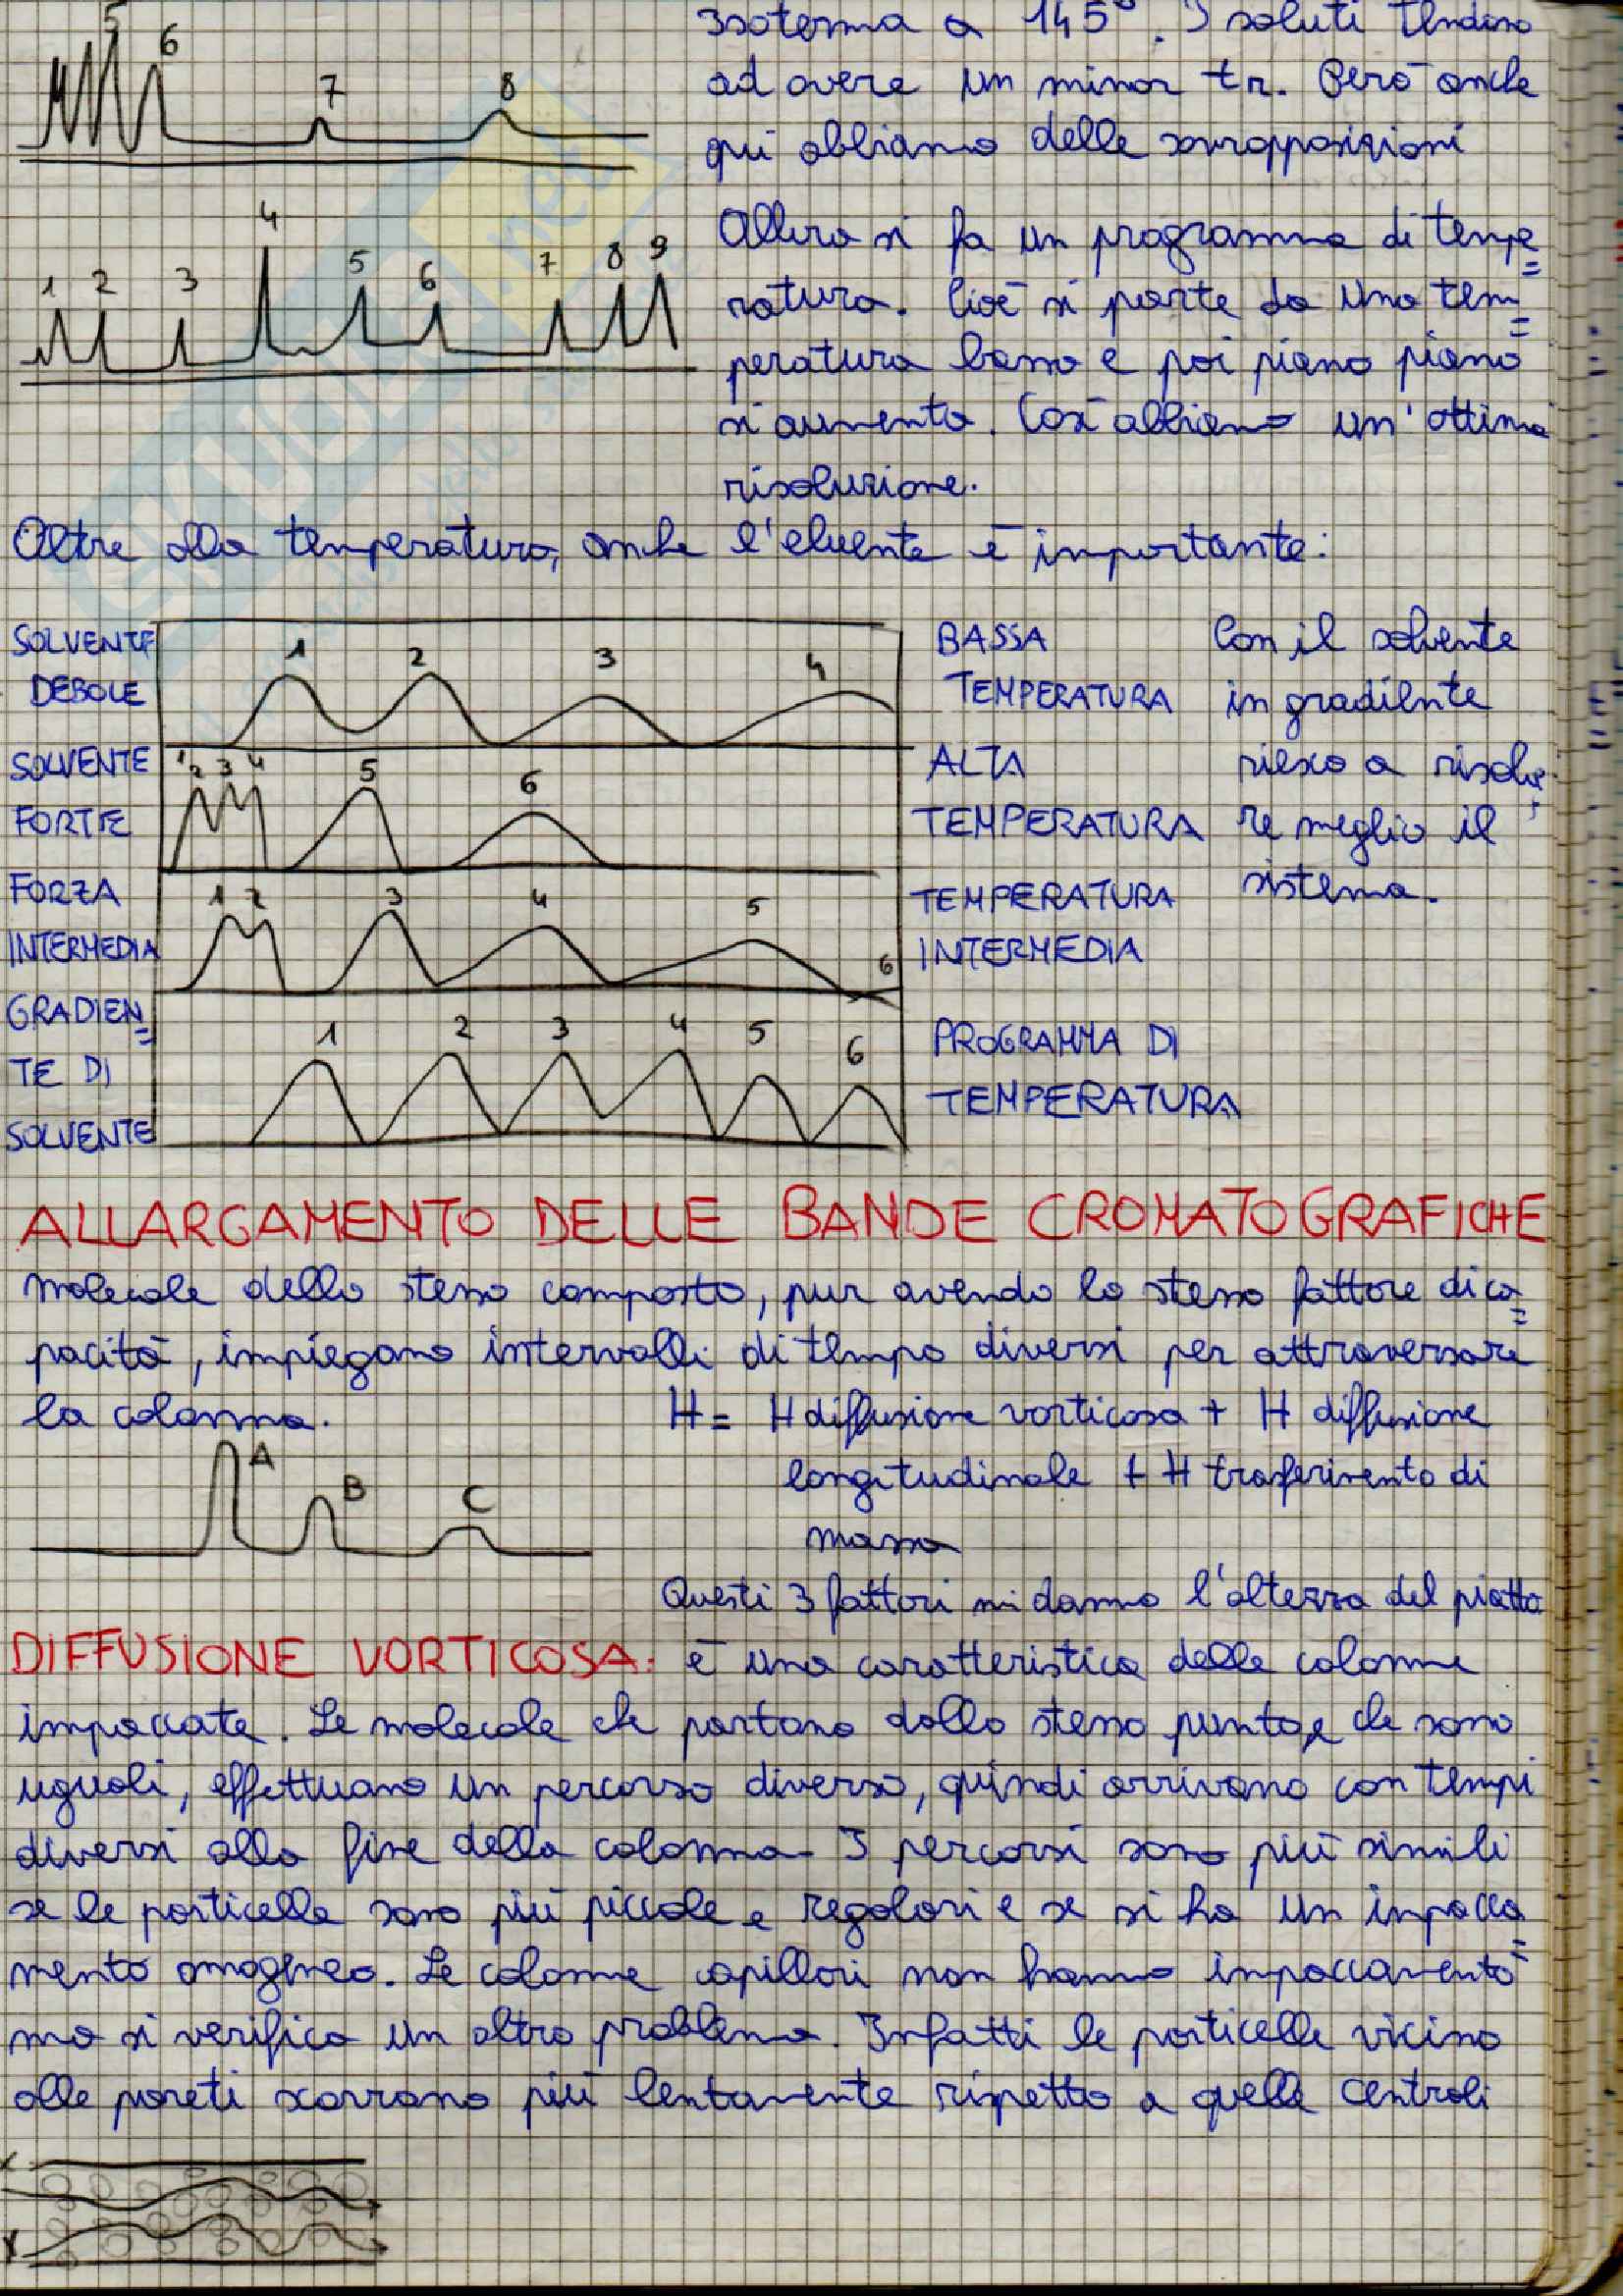 5
6
7
8
Isoterma a 145°. I soluti tendono
ad avere un minor tr. Però anche
qui abbiamo delle sovrapposizioni
1 2 3 4 5 6 7 8 9
Allora si fa un programma di tempe=
ratura. Cioè si parte da una tem=
peratura bassa e poi piano piano
si aumenta. Così abbiamo un'ottima
risoluzione.
Oltre alla temperatura, anche l'eluente è importante:
SOLVENTE
DEBOLE
1 2 3 4
BASSA
TEMPERATURA
SOLVENTE
FORTE
1 2 3 4 5 6
ALTA
TEMPERATURA
FORZA
INTERMEDIA
1 2 3 4 5 6
TEMPERATURA
INTERMEDIA
GRADIEN=
TE DI
SOLVENTE
1 2 3 4 5 6
PROGRAMMA DI
TEMPERATURA
Con il solvente
in gradiente
riesco a risolve
re meglio il
sistema.
ALLARGAMENTO DELLE BANDE CROMATOGRAFICHE
molecole dello stesso composto, pur avendo lo stesso fattore di ca=
pacità, impiegano intervalli di tempo diversi per attraversare
la colonna.
A
B
C
H = H diffusione vorticosa + H diffusione
longitudinale + H trasferimento di
massa
Questi 3 fattori mi danno l'altezza del piatto
DIFFUSIONE VORTICOSA: è una caratteristica delle colonne
impaccate. Le molecole che partono dallo stesso punto e che sono
uguali, effettuano un percorso diverso, quindi arrivano con tempi
diversi alla fine della colonna. I percorsi sono più simili
se le particelle sono più piccole e regolari e se si ha un impacca=
mento omogeneo. Le colonne capillari non hanno impaccamento
ma si verifica un altro problema. Infatti le particelle vicino
alle pareti scorrono più lentamente rispetto a quelle centrali
SKUOLA.net